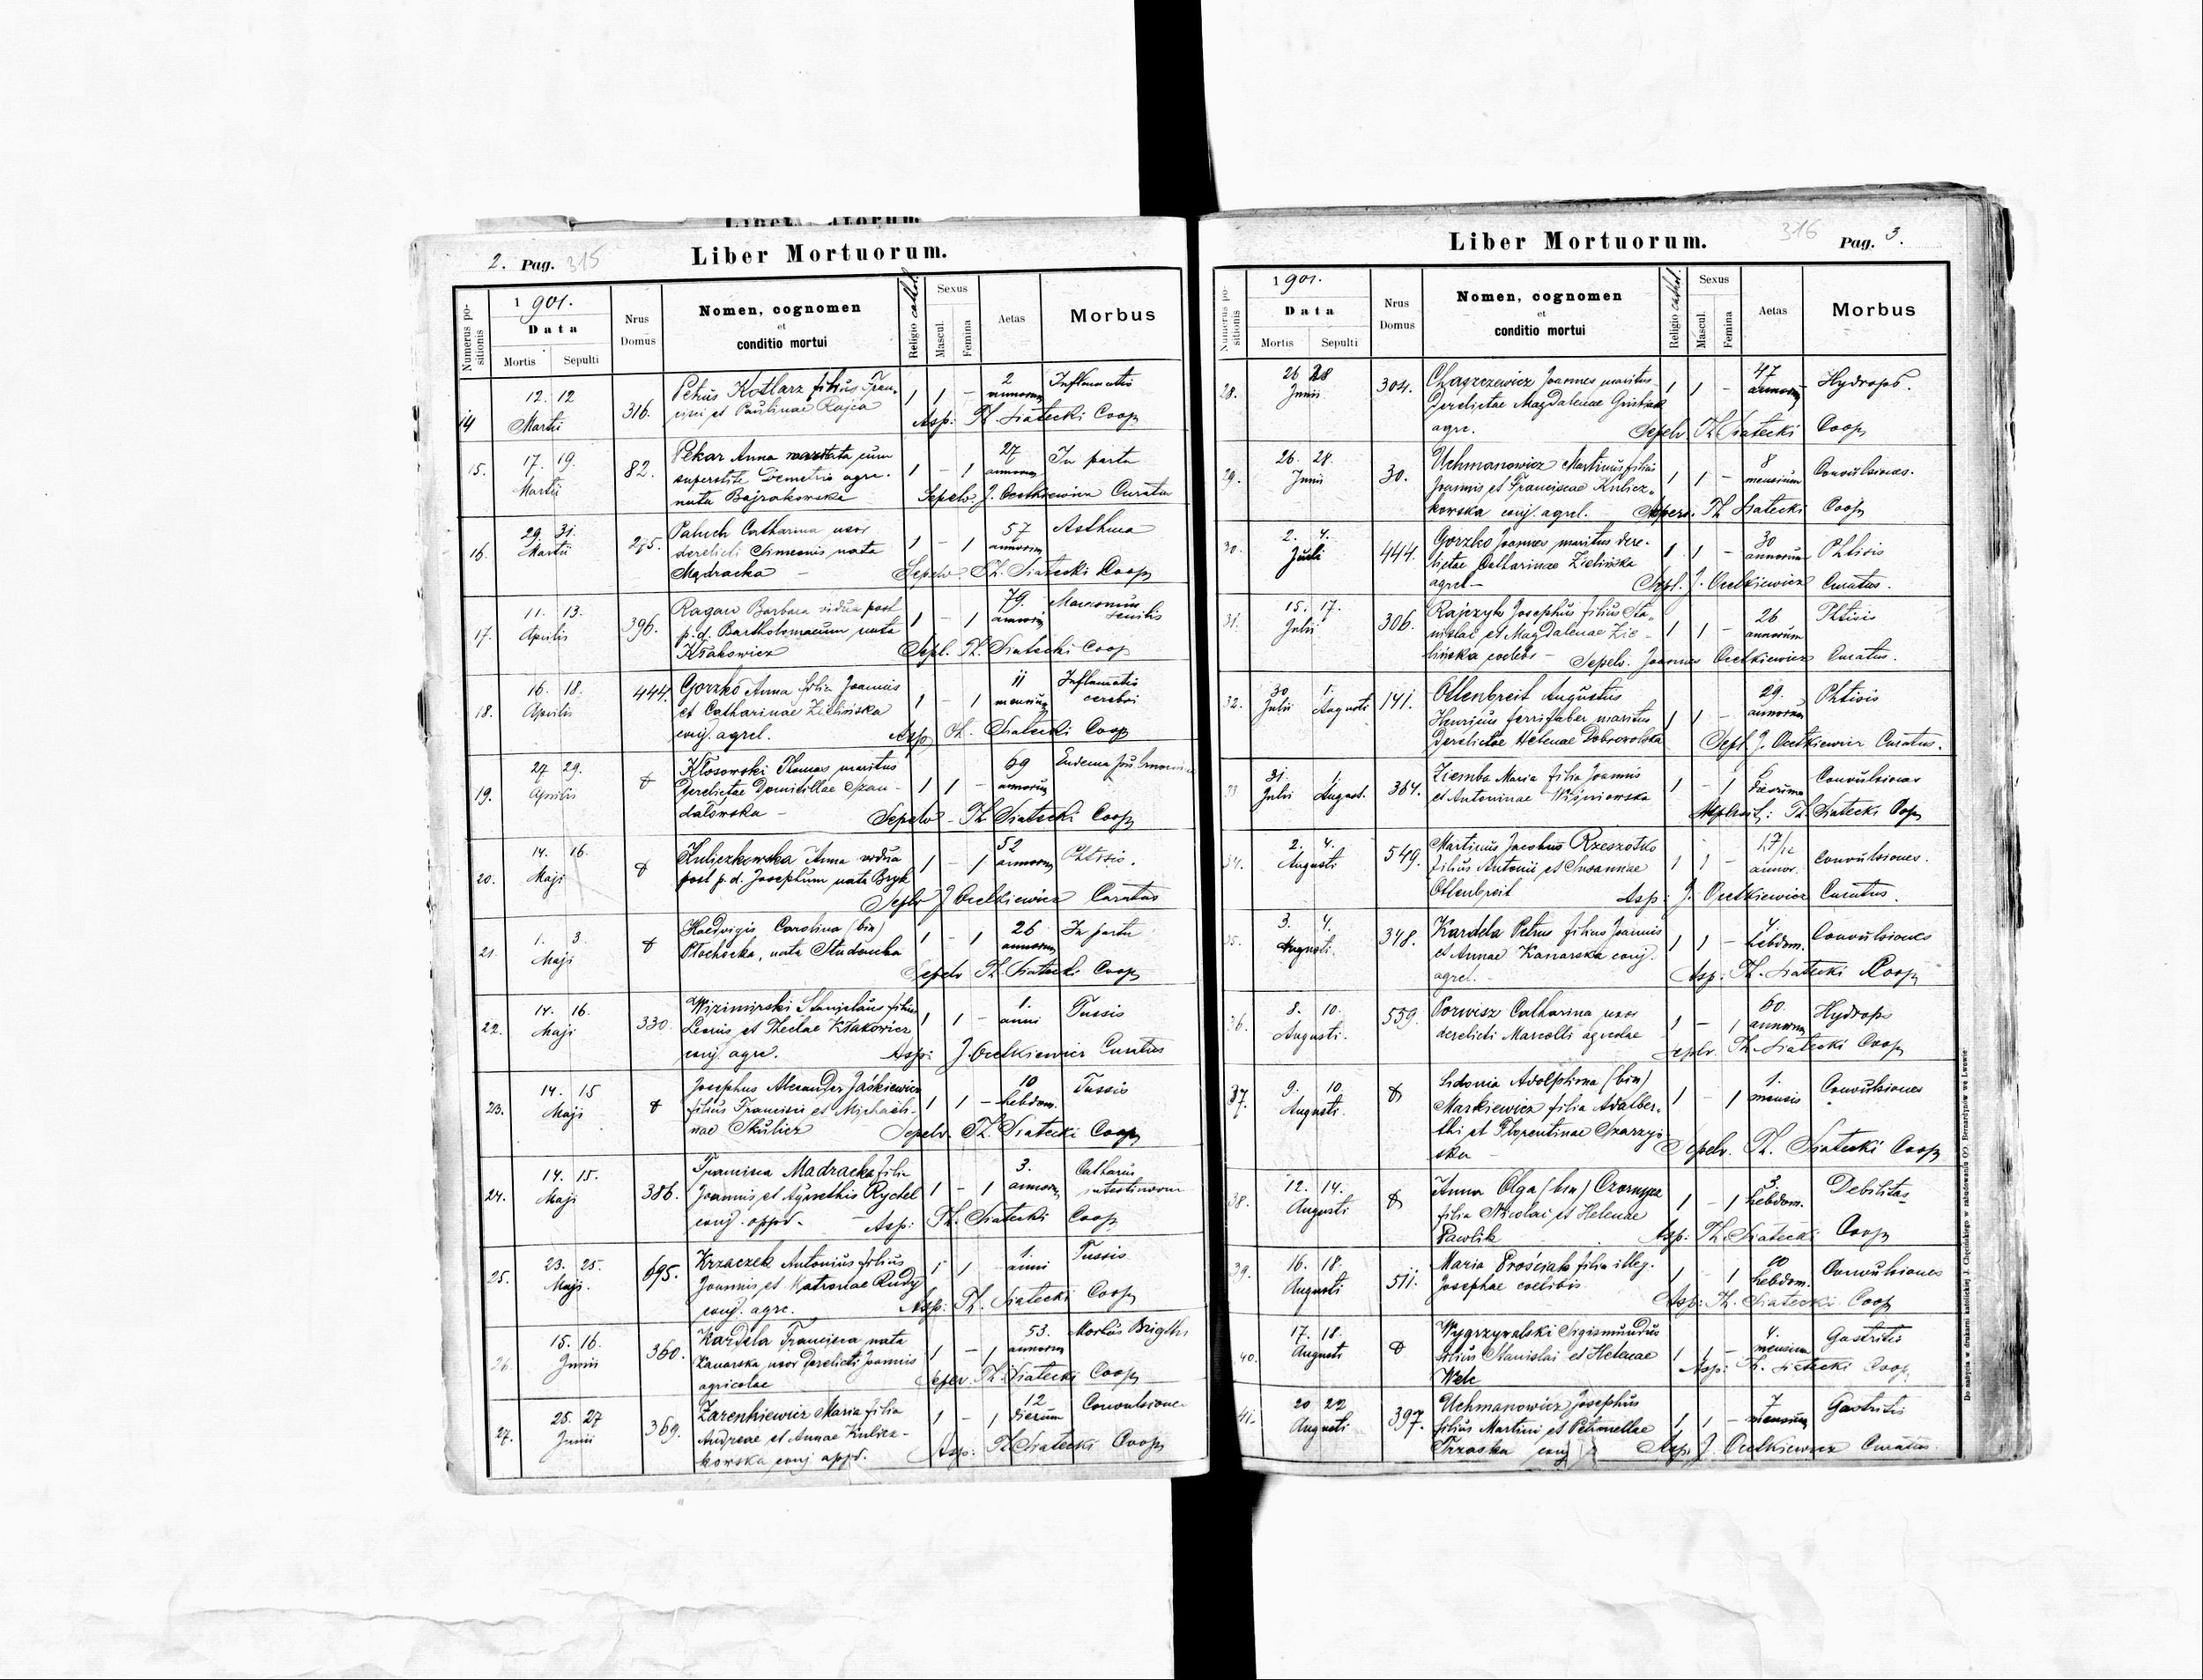 Liber Mortuorum.
2. Pag. 315
Numerus positionis
1901.
Data
Mortis Sepulti
Nrus Domus
Nomen, cognomen
et
conditio mortui
Religio cathol.
Sexus
Mascul. Femina
Aetas
Morbus
14 12. 12 Martii 316. 1 1 - 2 annorum Inflamatio
Petrus Kotlarz filius Fran-
cisci et Paulinae Rajca
Asp: Th. Siatecki Coop
15. 17. 19. Martii 82. 1 - 1 27 annorum In partu
Pekar Anna cum
superstite Demetrio agr.
nata Bajrakowska
Sepelv. J. Ocetkiewicz Curatu
16. 29. 31. Martii 275. 1 - 1 57 annorum Asthma
Paluch Catharina uxor
derelicti Simeonis nata
Mądracka -
Sepelv. Th. Siatecki Coop
17. 11. 13. Aprilis 396. 1 - 1 79. annorum Marasmus senilis
Ragan Barbara vidua post
p. d. Bartholomaeum nata
Kłakowicz
Sepl. Th. Siatecki Coop
18. 16. 18. Aprilis 444. 1 - 1 11 mensium Inflamatio cerebri
Gorzko Anna filia Joannis
et Catharinae Zielińska
conj. agrel.
Asp Th. Siatecki Coop
19. 27 29. Aprilis 1 1 - 69 annorum
Kłosowski Thomas maritus
derelictae Domitillae Szan-
dałowska -
Sepelv - Th Siatecki Coop
20. 14. 16. Maji 1 - 1 52 annorum Phtisis.
Kuliczkowska Anna vidua
post p. d. Josephum nata Bryk
Sepelv J Ocetkiewicz Curatus
21. 1. 3 Maji 1 - 1 26 annorum In partu
Haedvigis Carolina (bin)
Płochocka, nata Studencka
Sepelv Th. Siatecki Coop
22. 14. 16. Maji 330. 1 1 - 1. anni Tussis
Wizimirski Stanislaus filius
Leonis et Theclae Kłakowicz
conj. agr.
Asp: J. Ocetkiewicz Curatus
23. 14. 15 Maji 1 1 - 10 hebdom. Tussis
Josephus Alexander Jaśkiewicz
filius Francisci et Michaeli-
nae Skulicz
Sepelv. Th. Siatecki Coop
24. 14. 15. Maji 386. 1 - 1 3. annorum Catharus intestinorum
Francisca Mądracka filia
Joannis et Agnethis Rychel
conj. oppd. -
Asp: Th. Siatecki Coop
25. 23. 25. Maji. 695. 1 1 1. anni Tussis
Krzaczek Antonius filius
Joannis et Matronae Rudy
conj. agr.
Asp: Th. Siatecki Coop
26. 15. 16. Junii 360. 1 - 1 53. annorum Morbus Brigthi
Kardela Francisca nata
Kanarska, uxor derelicti Joannis
agricolae
Sepelv. Th. Siatecki Coop
27. 25. 27 Junii 369. 1 - 1 12 dierum Convulsiones
Zarenkiewicz Maria filia
Andreae et Annae Kulicz-
kowska conj oppd.
Asp: Th Siatecki Coop
Liber Mortuorum.
316 Pag. 3.
Numerus positionis
1901.
Data
Mortis Sepulti
Nrus Domus
Nomen, cognomen
et
conditio mortui
Religio cathol.
Sexus
Mascul. Femina
Aetas
Morbus
28. 26 28 Junii 304. 1 1 - 47 annorum Hydrops.
Chaszczewicz Joannes maritus
derelictae Magdalenae
agr.
Sepelv. Th Siatecki Coop
29. 26. 28. Junii 30. 1 1 - 8 mensium Convulsiones.
Uchmanowicz Martinus filius
Joannis et Franciscae Kulicz-
kowska conj. agrel.
Th Siatecki Coop
30. 2. 4. Julii 444. 1 1 - 30 annorum Phtisis
Gorzko Joannes maritus dere-
lictae Catharinae Zielińska
agrel -
Sepl. J. Ocetkiewicz Curatus.
31. 15. 17. Julii 306. 1 1 - 26 annorum Phtisis
Rajczyk Josephus filius Sta-
nislai et Magdalenae Zie-
lińska coelebs -
Sepelv. Joannes Ocetkiewicz Curatus.
32. 30 Julii 1. Augusti 141. 1 1 - 29. annorum Phtisis
Ottenbreit Augustus
Henricus ferrifaber maritus
derelictae Helenae Dobrowolska
Sepl J. Ocetkiewicz Curatus.
33 31. Julii 1. August. 364. 1 - 1 dierum Convulsiones
Ziemba Maria filia Joannis
et Antoninae Wiśniowska
Th. Siatecki Coop
34. 2. 4. Augusti 549. 1 1 - 1 7/12 annor. Convulsiones.
Martinus Jacobus Rzeszotko
filius Antonii et Susannae
Ottenbreit
Asp: J. Ocetkiewicz Curatus.
35. 3. 4. Augusti. 348. 1 1 - 4. hebdom. Convulsiones
Kardela Petrus filius Joannis
et Annae Kanarska conj.
agrel. -
Asp: Th. Siatecki Coop
36. 8. 10. Augusti. 559. 1 - 1 60. annorum Hydrops
Porwisz Catharina uxor
derelicti Marcelli agricolae
Sepelv. Th. Siatecki Coop
37. 9. 10. Augusti. 1 - 1 1. mensis Convulsiones
Sidonia Adolphina (bin)
Markiewicz filia Adalber-
thi et Florentinae Skarzyń-
ska -
Sepelv. Th. Siatecki Coop
38. 12. 14. Augusti 1 - 1 3. hebdom. Debilitas
Anna Olga (bin) Czornyga
filia Nicolai et Helenae
Pawlik
Asp: Th. Siatecki Coop
39. 16. 18. Augusti 511. 1 - 1 hebdom. Convulsiones
Maria Prościak filia illeg.
Josephae coelibis.
Asp: Th. Siatecki Coop
40. 17. 18. Augusti 1 1 - 4. mensium Gastritis
Wygrzywalski Sigismundus
filius Stanislai et Helenae
Asp: Th. Siatecki Coop.
41. 20 22 Augusti 397. 1 1 - 7 mensium Gastritis
Uchmanowicz Josephus
filius Martini et Petronellae
Trzaska conj
Asp: J. Ocetkiewicz Curatus.
Do nabycia w drukarni katolickiej J. Chęcińskiego w zabudowaniu OO. Bernardynów we Lwowie